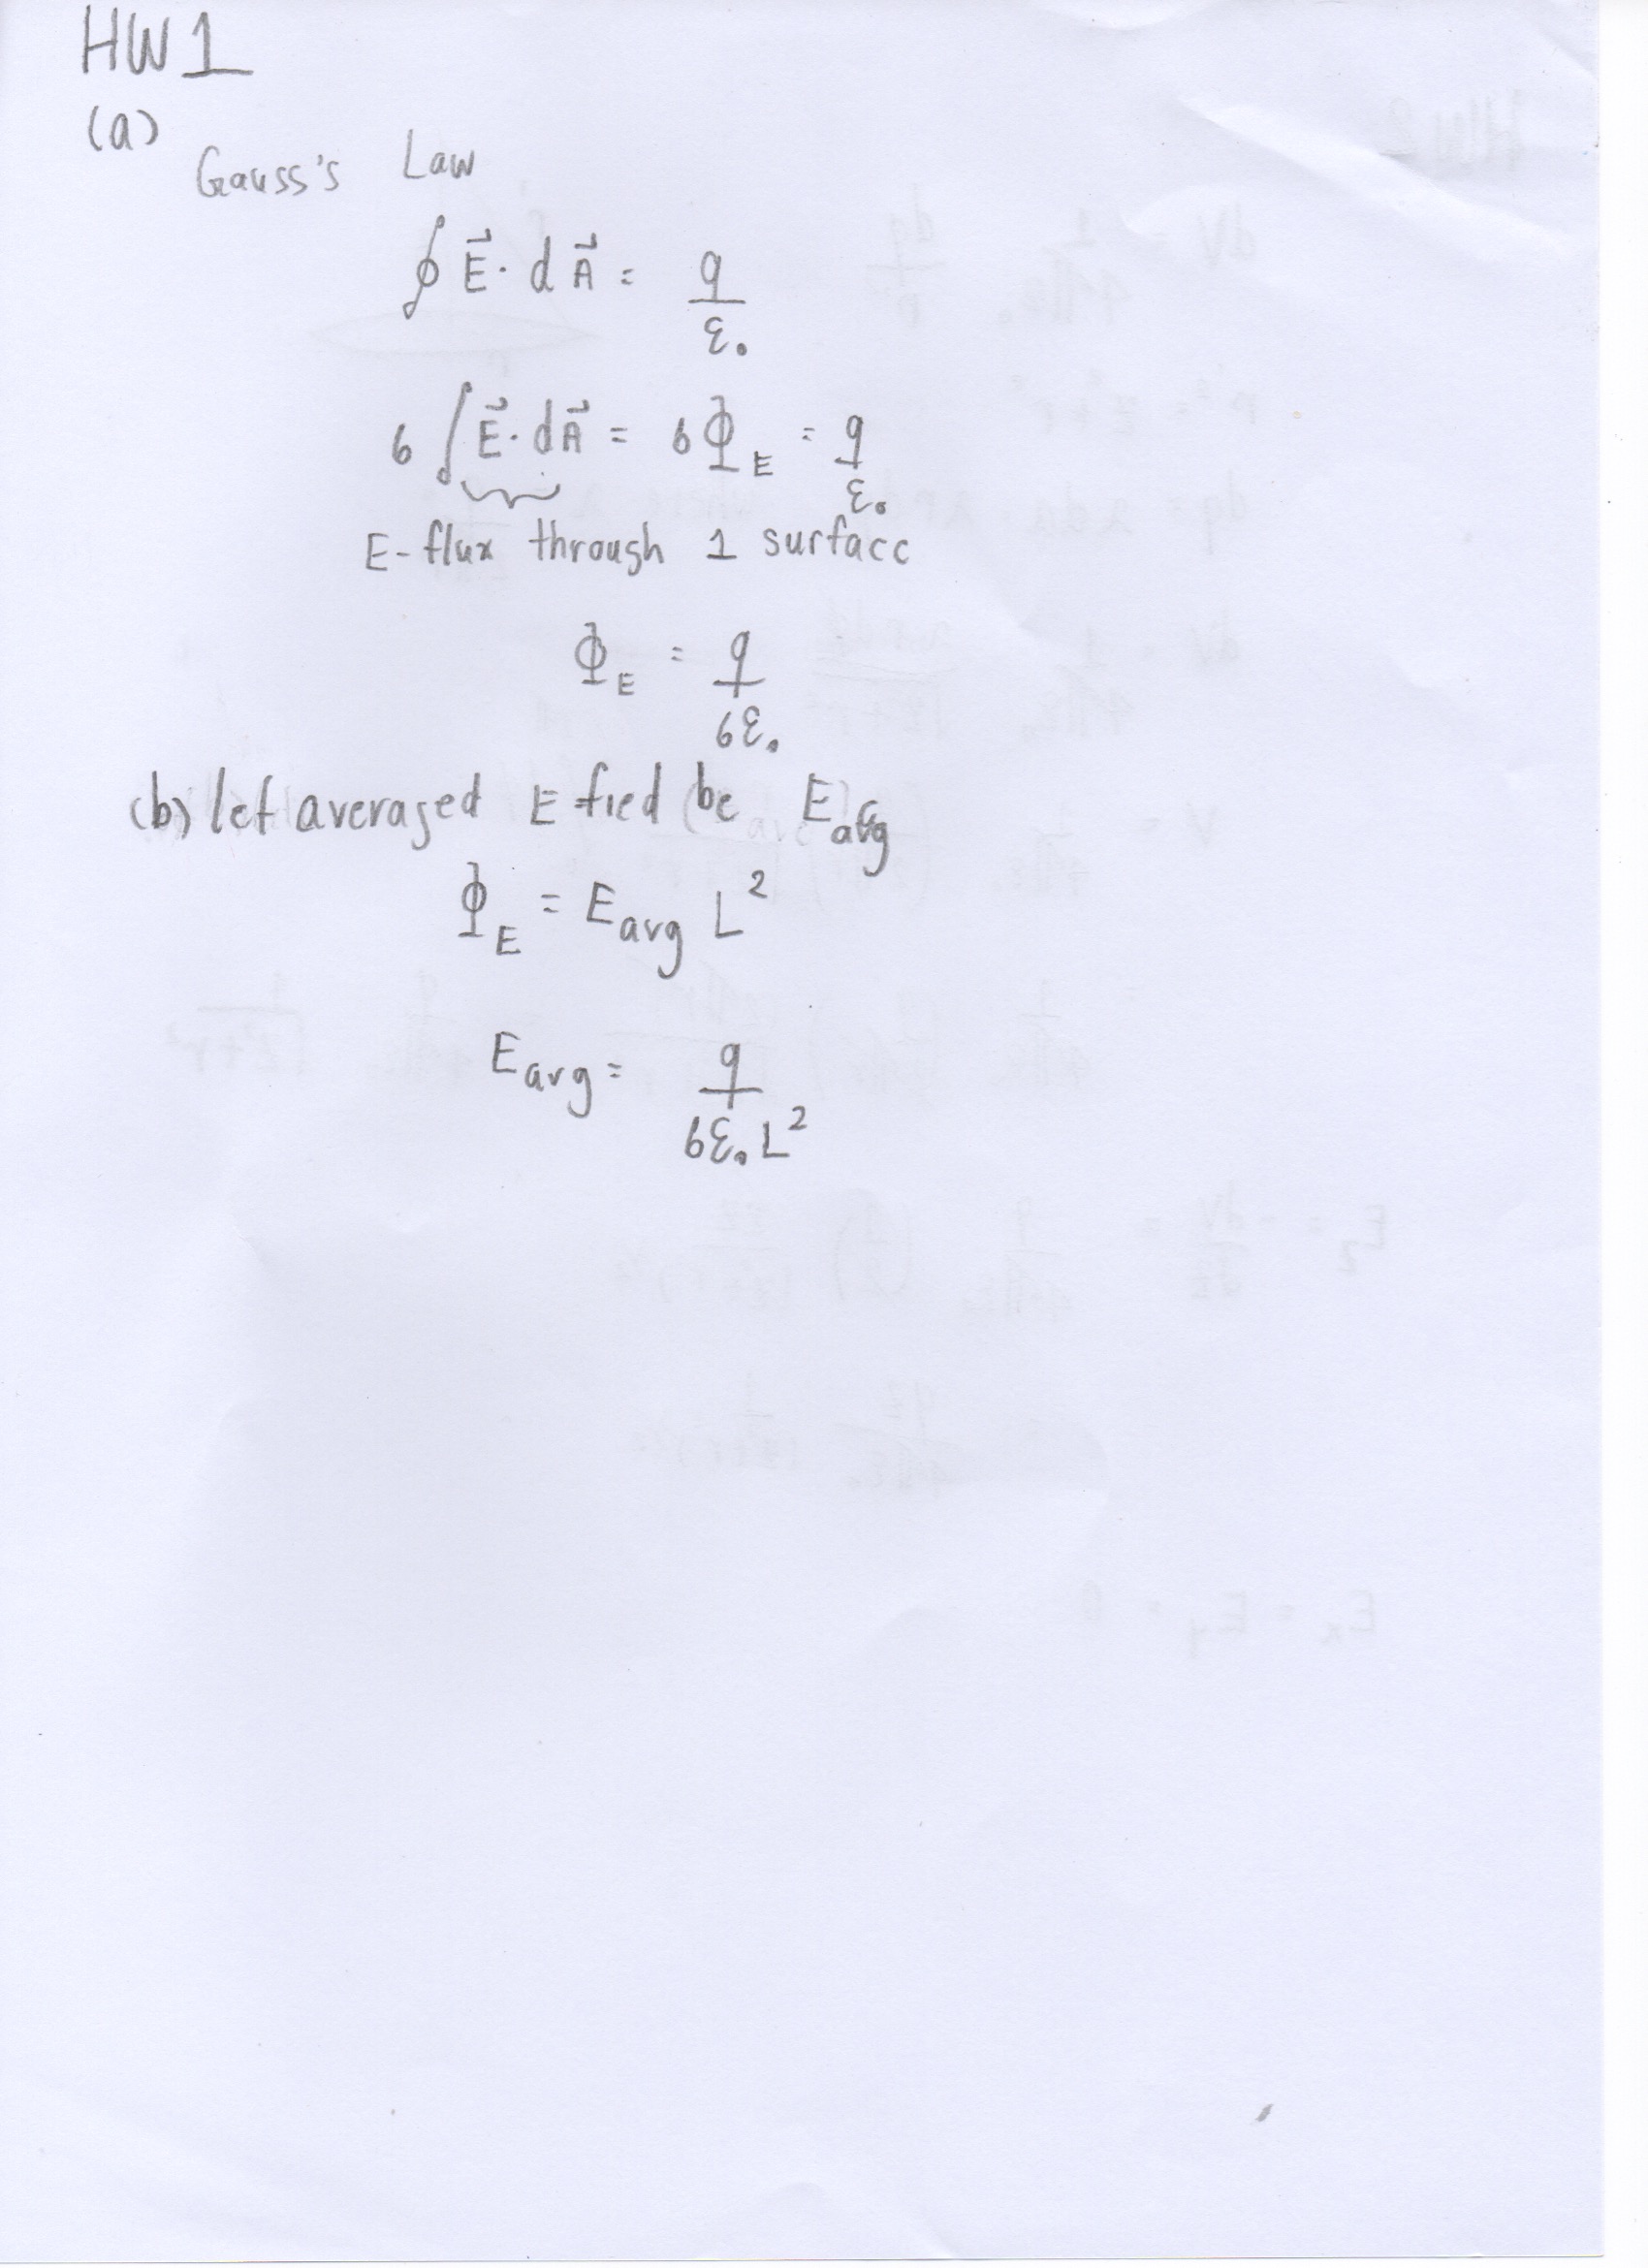 HW1
(a)
Gauss's Law
∮ E⃗ · dA⃗ = q/ε₀
6 ∫ E⃗ · dA⃗ = 6 Φ_E = q/ε₀
E-flux through 1 surface
Φ_E = q/6ε₀
(b) let averaged E fied be E_avg
Φ_E = E_avg L²
E_avg = q/6ε₀L²